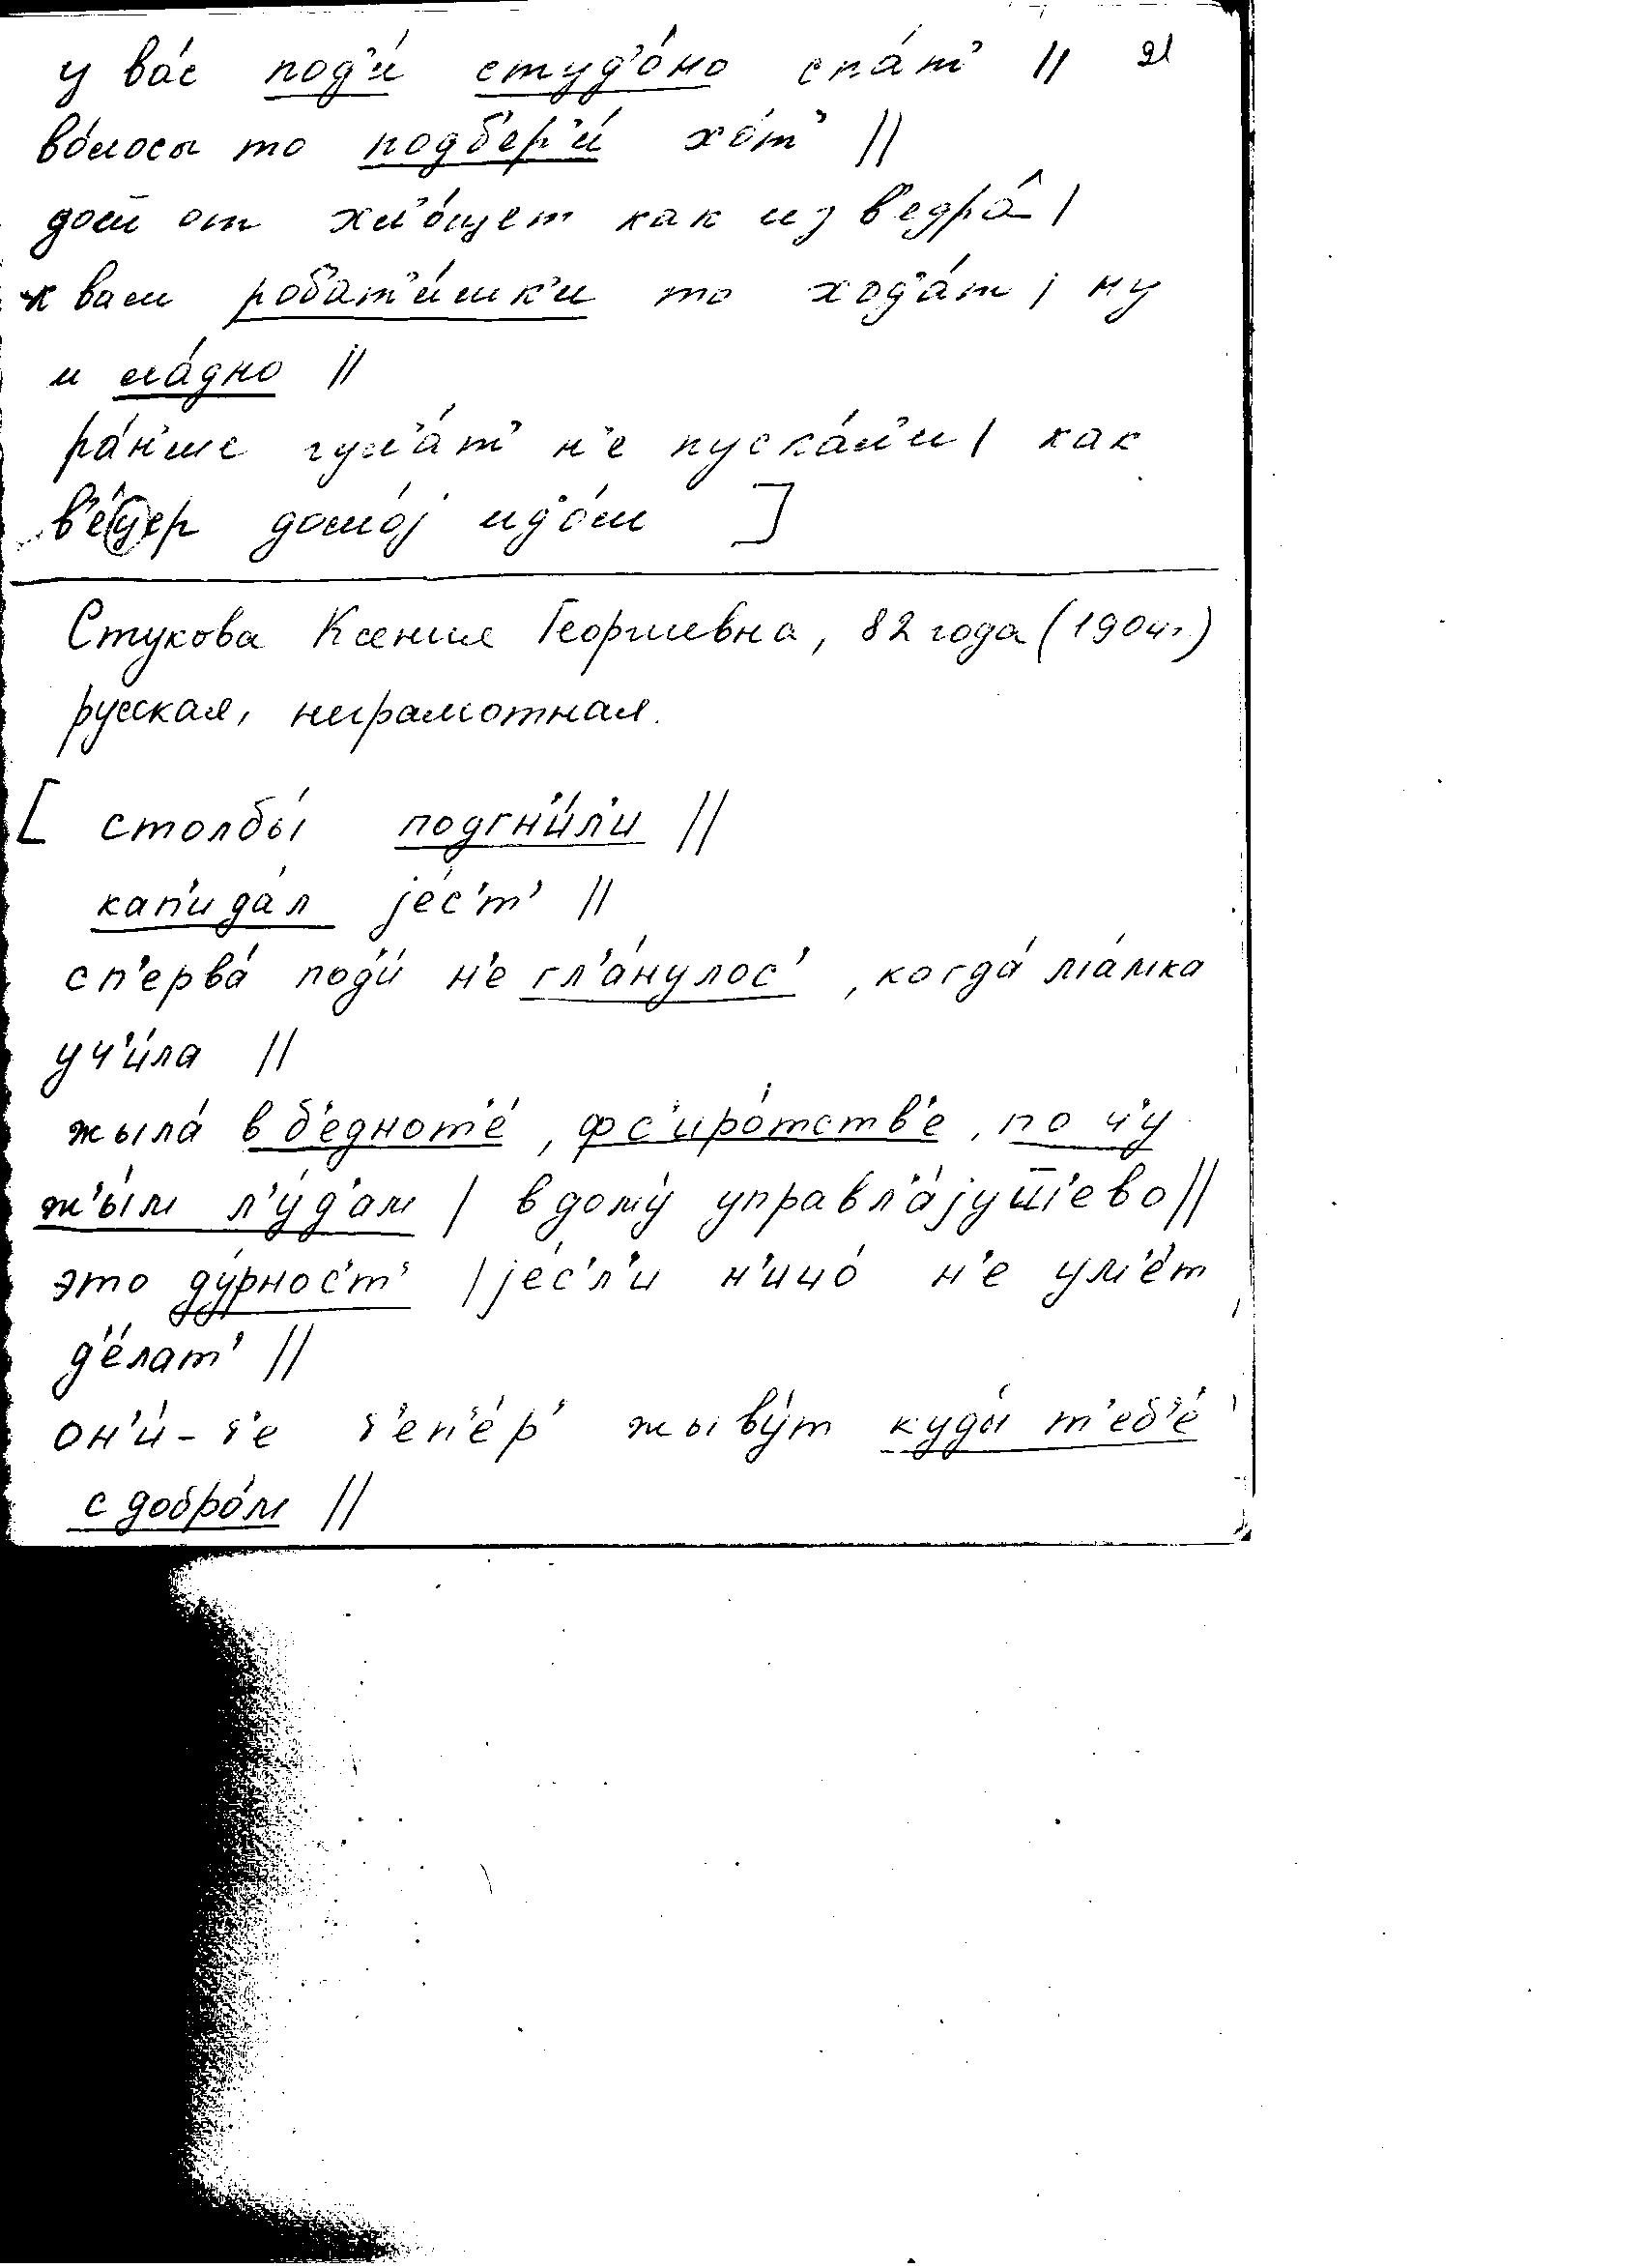 у ва́с под'и́ студ'о́но спа́т' || 21
во́лосы то подб'ер'и́ хо́т' ||
дош от хл'о́щет как из в'едра́ |
к вам робат'и́шк'и то ход'а́т | ну
и ла́дно ||
ра́н'ше гул'а́т' н'е пуска́л'и | как
в'е́цер домо́j ид'о́м ]
Стукова Ксения Георгиевна, 82 года (1904г.)
русская, неграмотная.
[ столбы́ подгн'и́л'и ||
кап'ида́л jе́с'т' ||
сп'ерва́ под'и́ н'е гл'а́нулос', когда́ ма́мка
уч'и́ла ||
жыла́ в б'еднот'е́, фс'иро́тств'е, по ч'у
ж'ы́м л'у́д'ам | в дому́ управл'а́jуш̅'ево ||
это ду́рнос'т' | jе́с'л'и н'ичо́ н'е ум'е́т
д'е́лат' ||
он'и́-т'е т'еп'е́р' жыву́т куды́ т'еб'е́
с добро́м ||